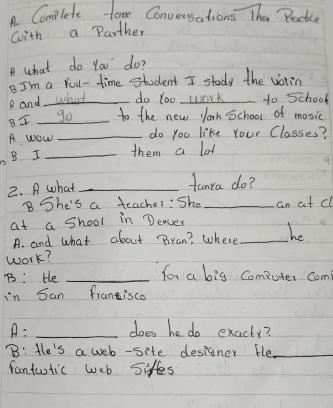 A. Complete these Conversations Then Practice
with a Parther
A what do You do?
B I'm a Full-time Student I study the violin
A and what do You work to School
B I go to the new York School of mosic
A. wow do You like Your Classes?
B. I them a lot
2. A what tanya do?
B She's a teacher: She an at cl
at a Shool in Denver
A. and what about Ryan? Where he
work?
B: He For a big Computer Com
in San francisco
A: does he do exactly?
B: He's a web-Site designer He
fantastic web Sites